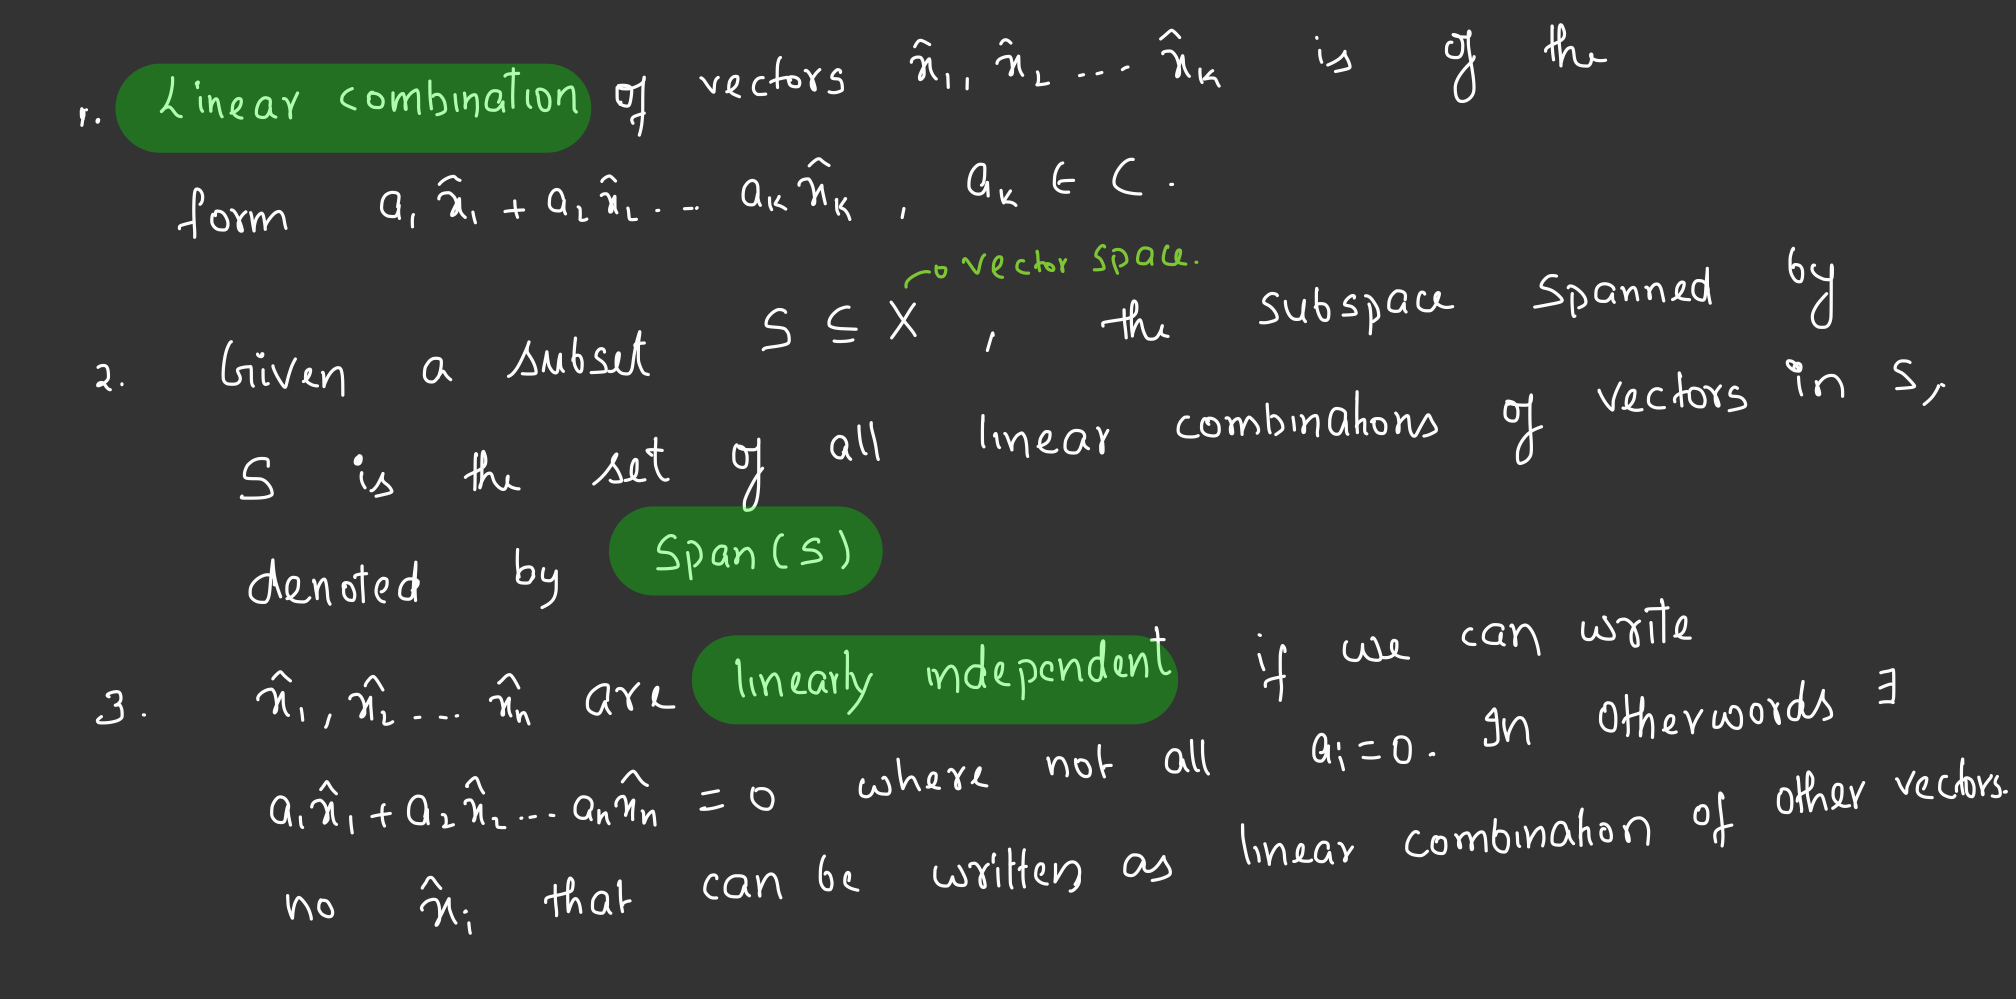 1. Linear combination of vectors x̂₁, x̂₂ ... x̂ₖ is of the
form a₁x̂₁ + a₂x̂₂ ... aₖx̂ₖ , aₖ ∈ C.
vector space.
2. Given a subset S ⊆ X , the subspace spanned by
S is the set of all linear combinations of vectors in S,
denoted by Span(S)
3. x̂₁, x̂₂ ... x̂ₙ are linearly independent if we can write
a₁x̂₁ + a₂x̂₂ ... aₙx̂ₙ = 0 where not all aᵢ = 0. In otherwords ∃
no x̂ᵢ that can be written as linear combination of other vectors.